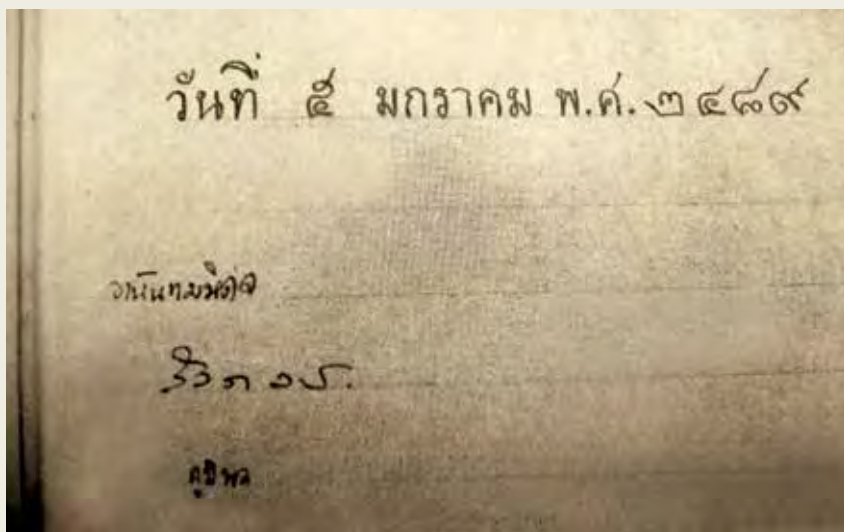 วันที่ ๕ มกราคม พ.ศ. ๒๔๘๙
อานันทมหิดล
ภูมิพล